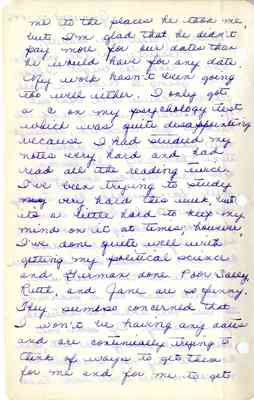 me to the places he took me,
but I'm glad that he didn't
pay more for our dates than
he would have for any date.
My work hasn't been going
too well either. I only got
a c on my psychology test
which was quite disappointing
because I had studied my
notes very hard and had
read all the reading twice.
I've been trying to study
very hard this week, but
its a little hard to keep my
mind on it at times; however,
I've done quite well with
getting my political science
and German done. Poor Sally,
Ruth, and Jane are so funny.
They seem so concerned that
I won't be having any dates
and are continually trying to
think of ways to get them
for me and for me to get